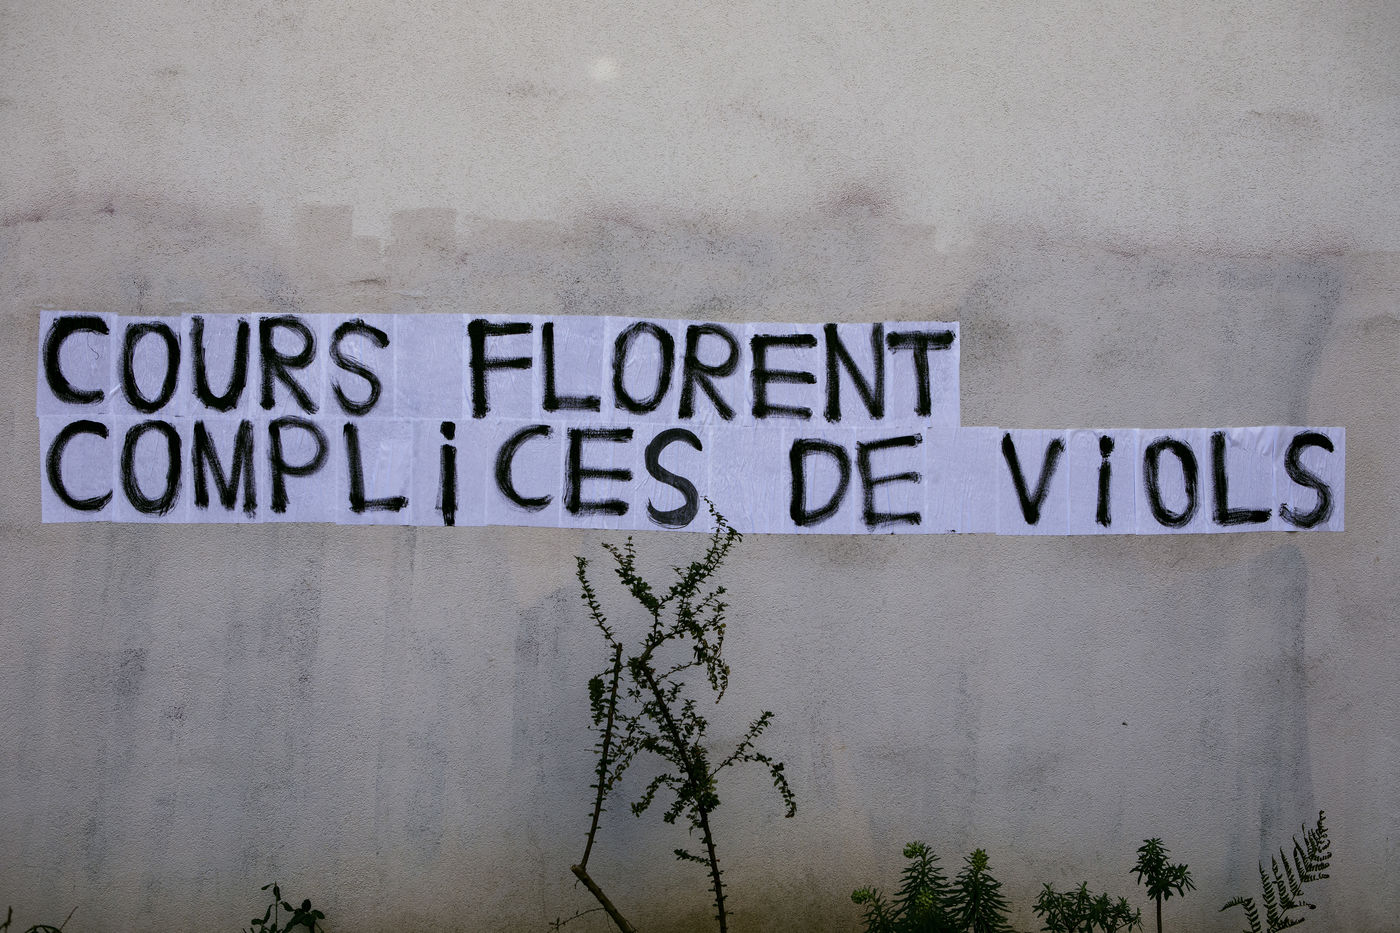 COURS FLORENT
COMPLiCES DE ViOLS